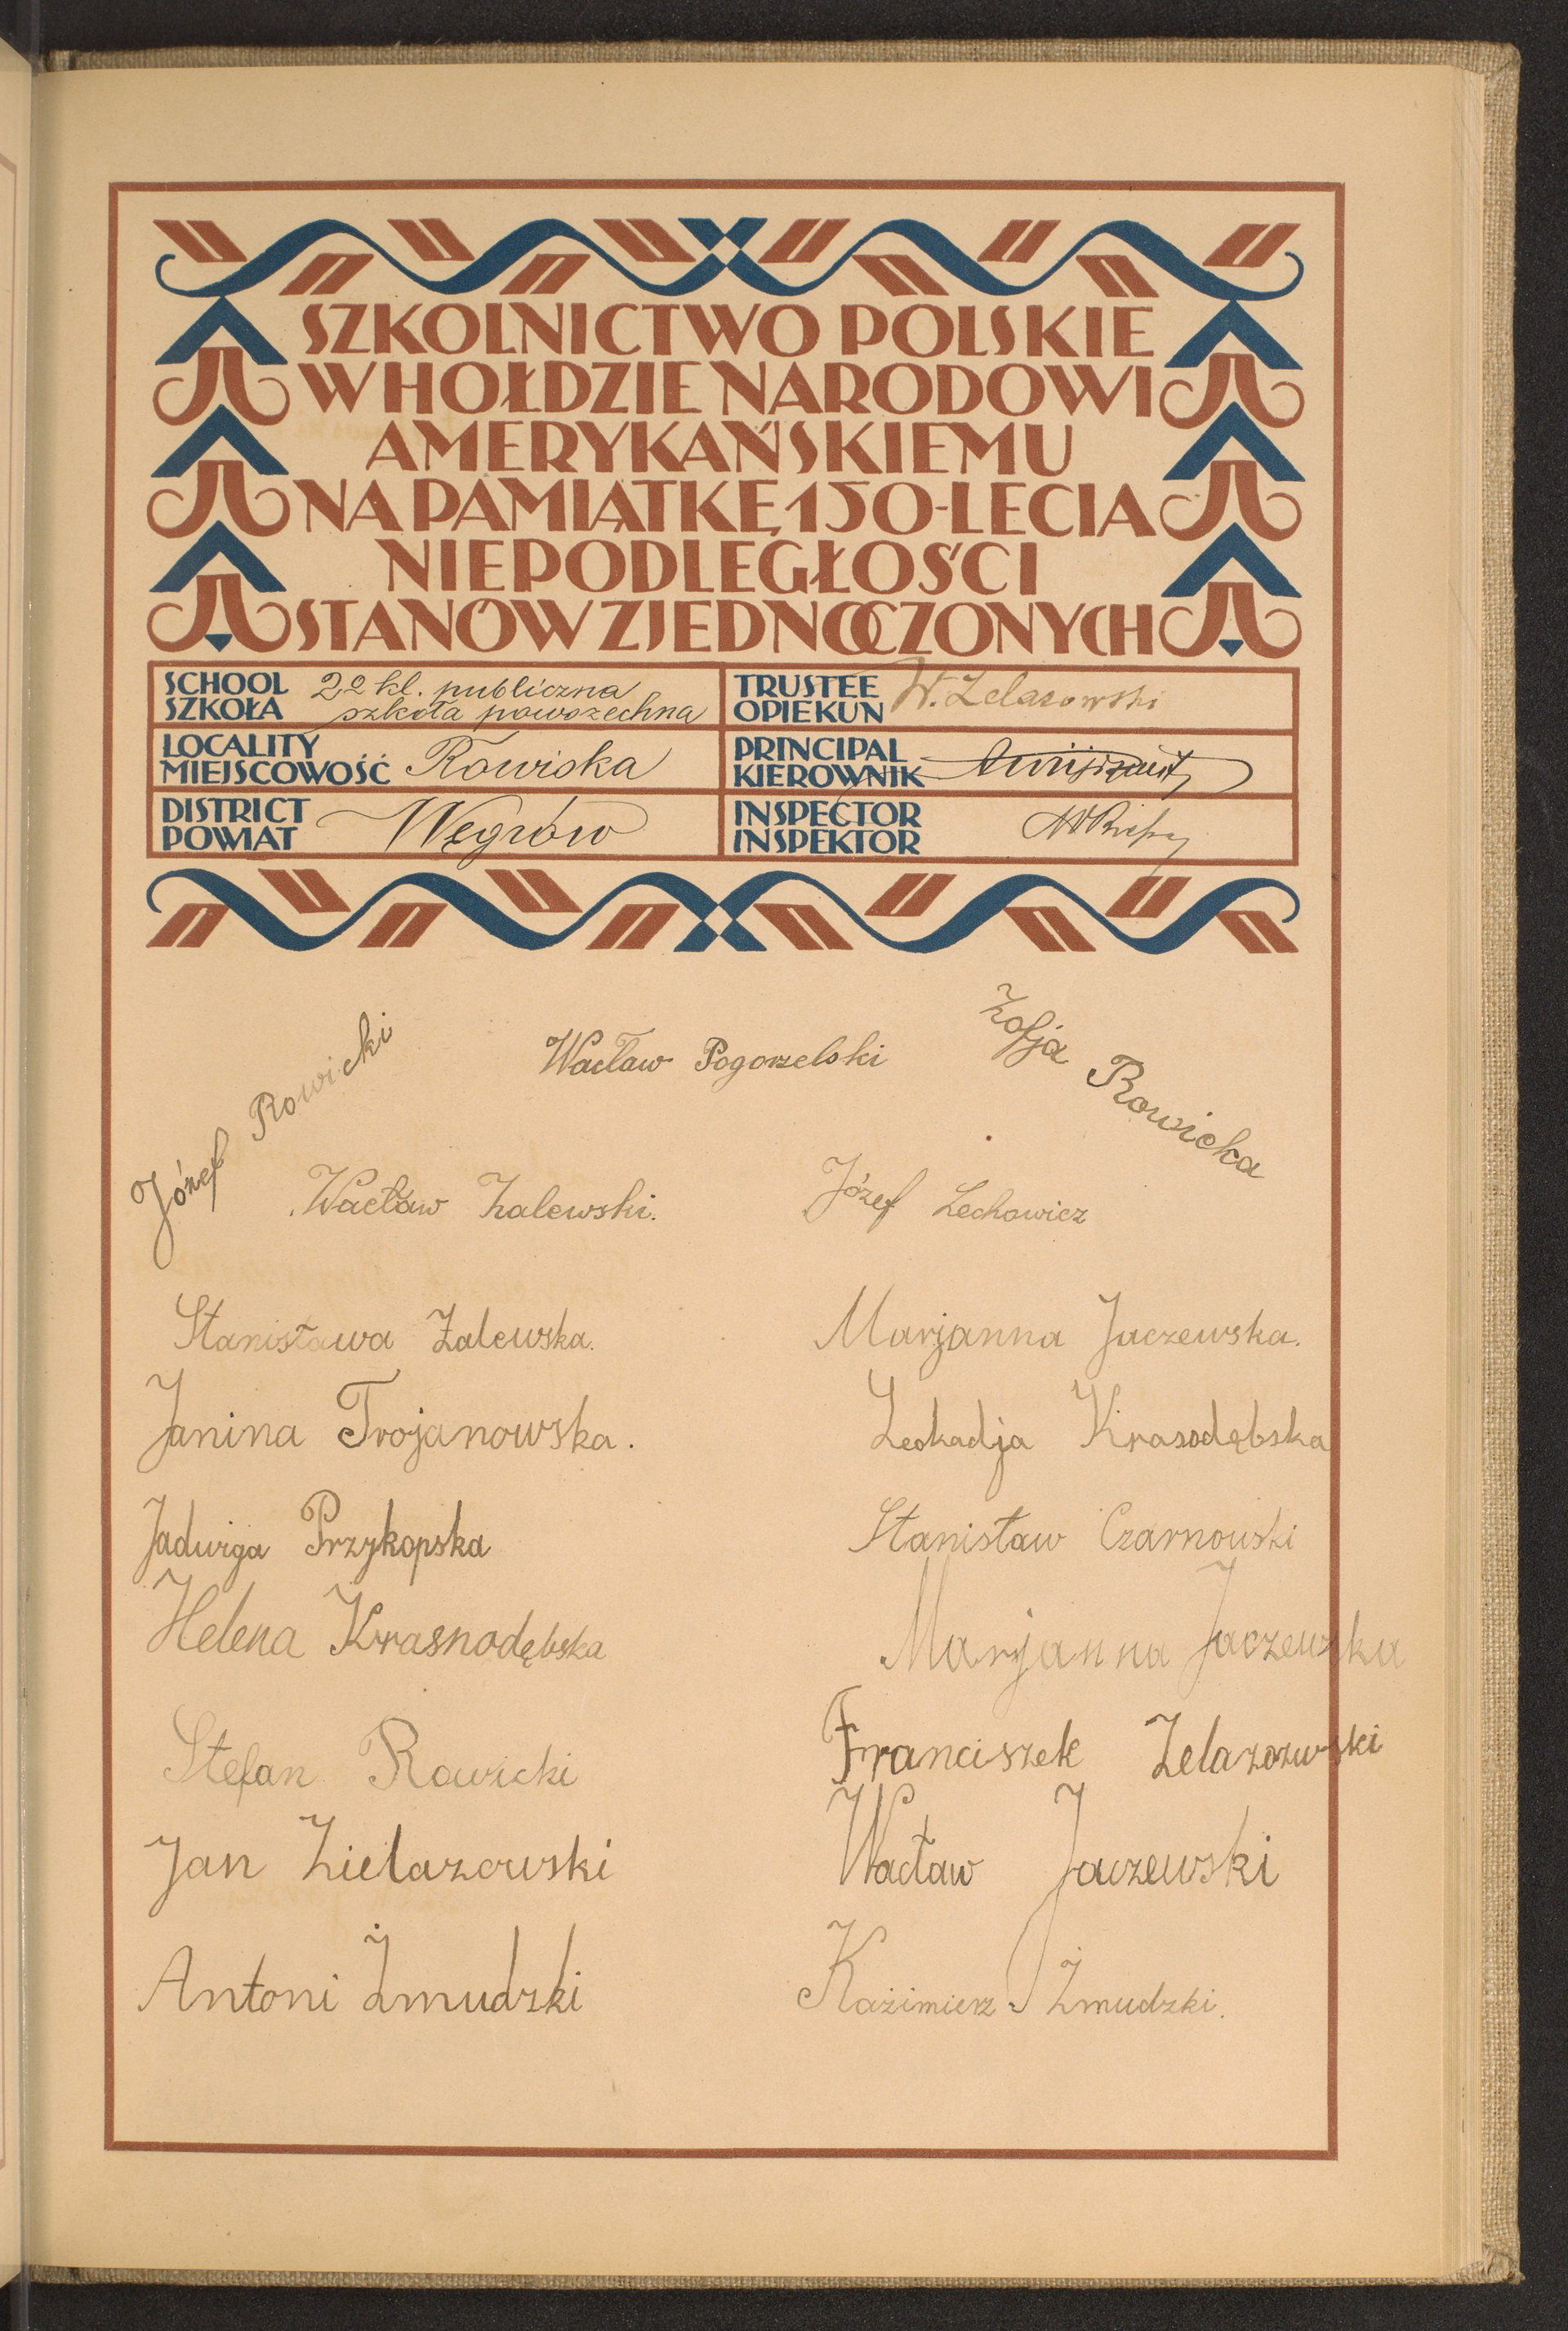 SZKOLNICTWO POLSKIE
W HOŁDZIE NARODOWI
AMERYKAŃSKIEMU
NA PAMIĄTKĘ 150-LECIA
NIEPODLEGŁOŚCI
STANÓW ZJEDNOCZONYCH
SCHOOL
SZKOŁA
2o kl. publiczna
szkoła powszechna
TRUSTEE
OPIEKUN
W. Zelazowski
LOCALITY
MIEJSCOWOŚĆ
Rowiska
PRINCIPAL
KIEROWNIK
DISTRICT
POWIAT
Węgrów
INSPECTOR
INSPEKTOR
Józef Rowicki
Wacław Pogorzelski
Zofja Rowicka
Wacław Zalewski.
Józef Lechowicz
Stanisława Zalewska.
Marjanna Jaczewska.
Janina Trojanowska.
Leokadja Krasodębska
Jadwiga Przykopska
Stanisław Czarnowski
Helena Krasnodębska
Marjanna Jaczewska
Stefan Rowicki
Franciszek Zelazozwski
Jan Zielazowski
Wacław Jaczewski
Antoni Żmudzki
Kazimierz Żmudzki.